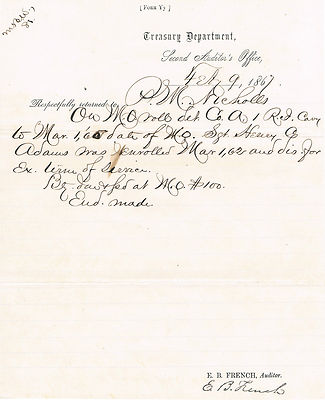 [Form Y7]
Treasury Department,
Second Auditor's Office,
Feb 9, 1867
Respectfully returned to P. M. Nicholls
On M.O. rolls det Co. A, 1 R.I. Cavy
to Mar. 1, 65 date of M.O. Sgt Henry G
Adams was enrolled Mar 1, 62 and dis. for
Ex. term of service.
Bty. due & pd at M.O. $100.
End. made.
E. B. FRENCH, Auditor.
E. B. French